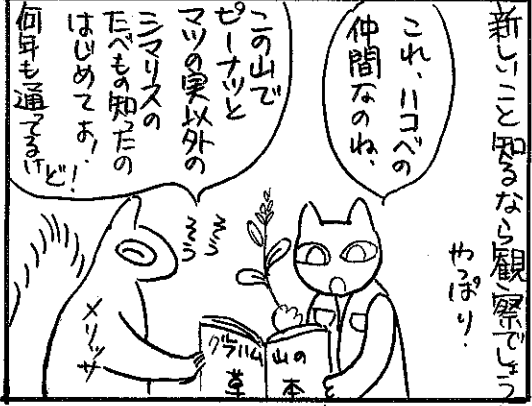 新しいこと知るなら観察でしょう
やっぱり.
これ、ハコベの
仲間なのね、
この山で
ピーナッツと
マツの実以外の
シマリスの
たべもの知ったの
はじめてよ!
何年も通ってるけど!
メリッサ
グラハム
草
山の
本